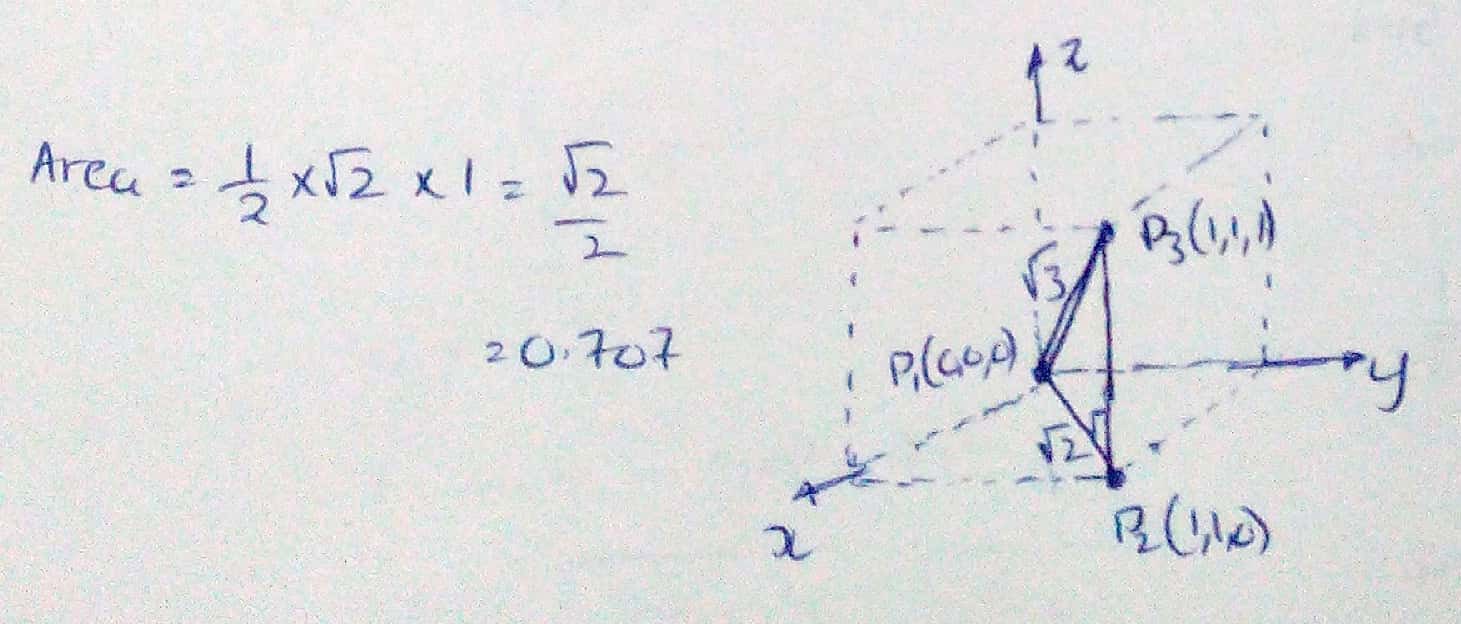 Area = 1/2 × √2 × 1 = √2/2
= 0.707
z
P3(1,1,1)
√3
P1(0,0,0)
y
√2
x
P2(1,1,0)